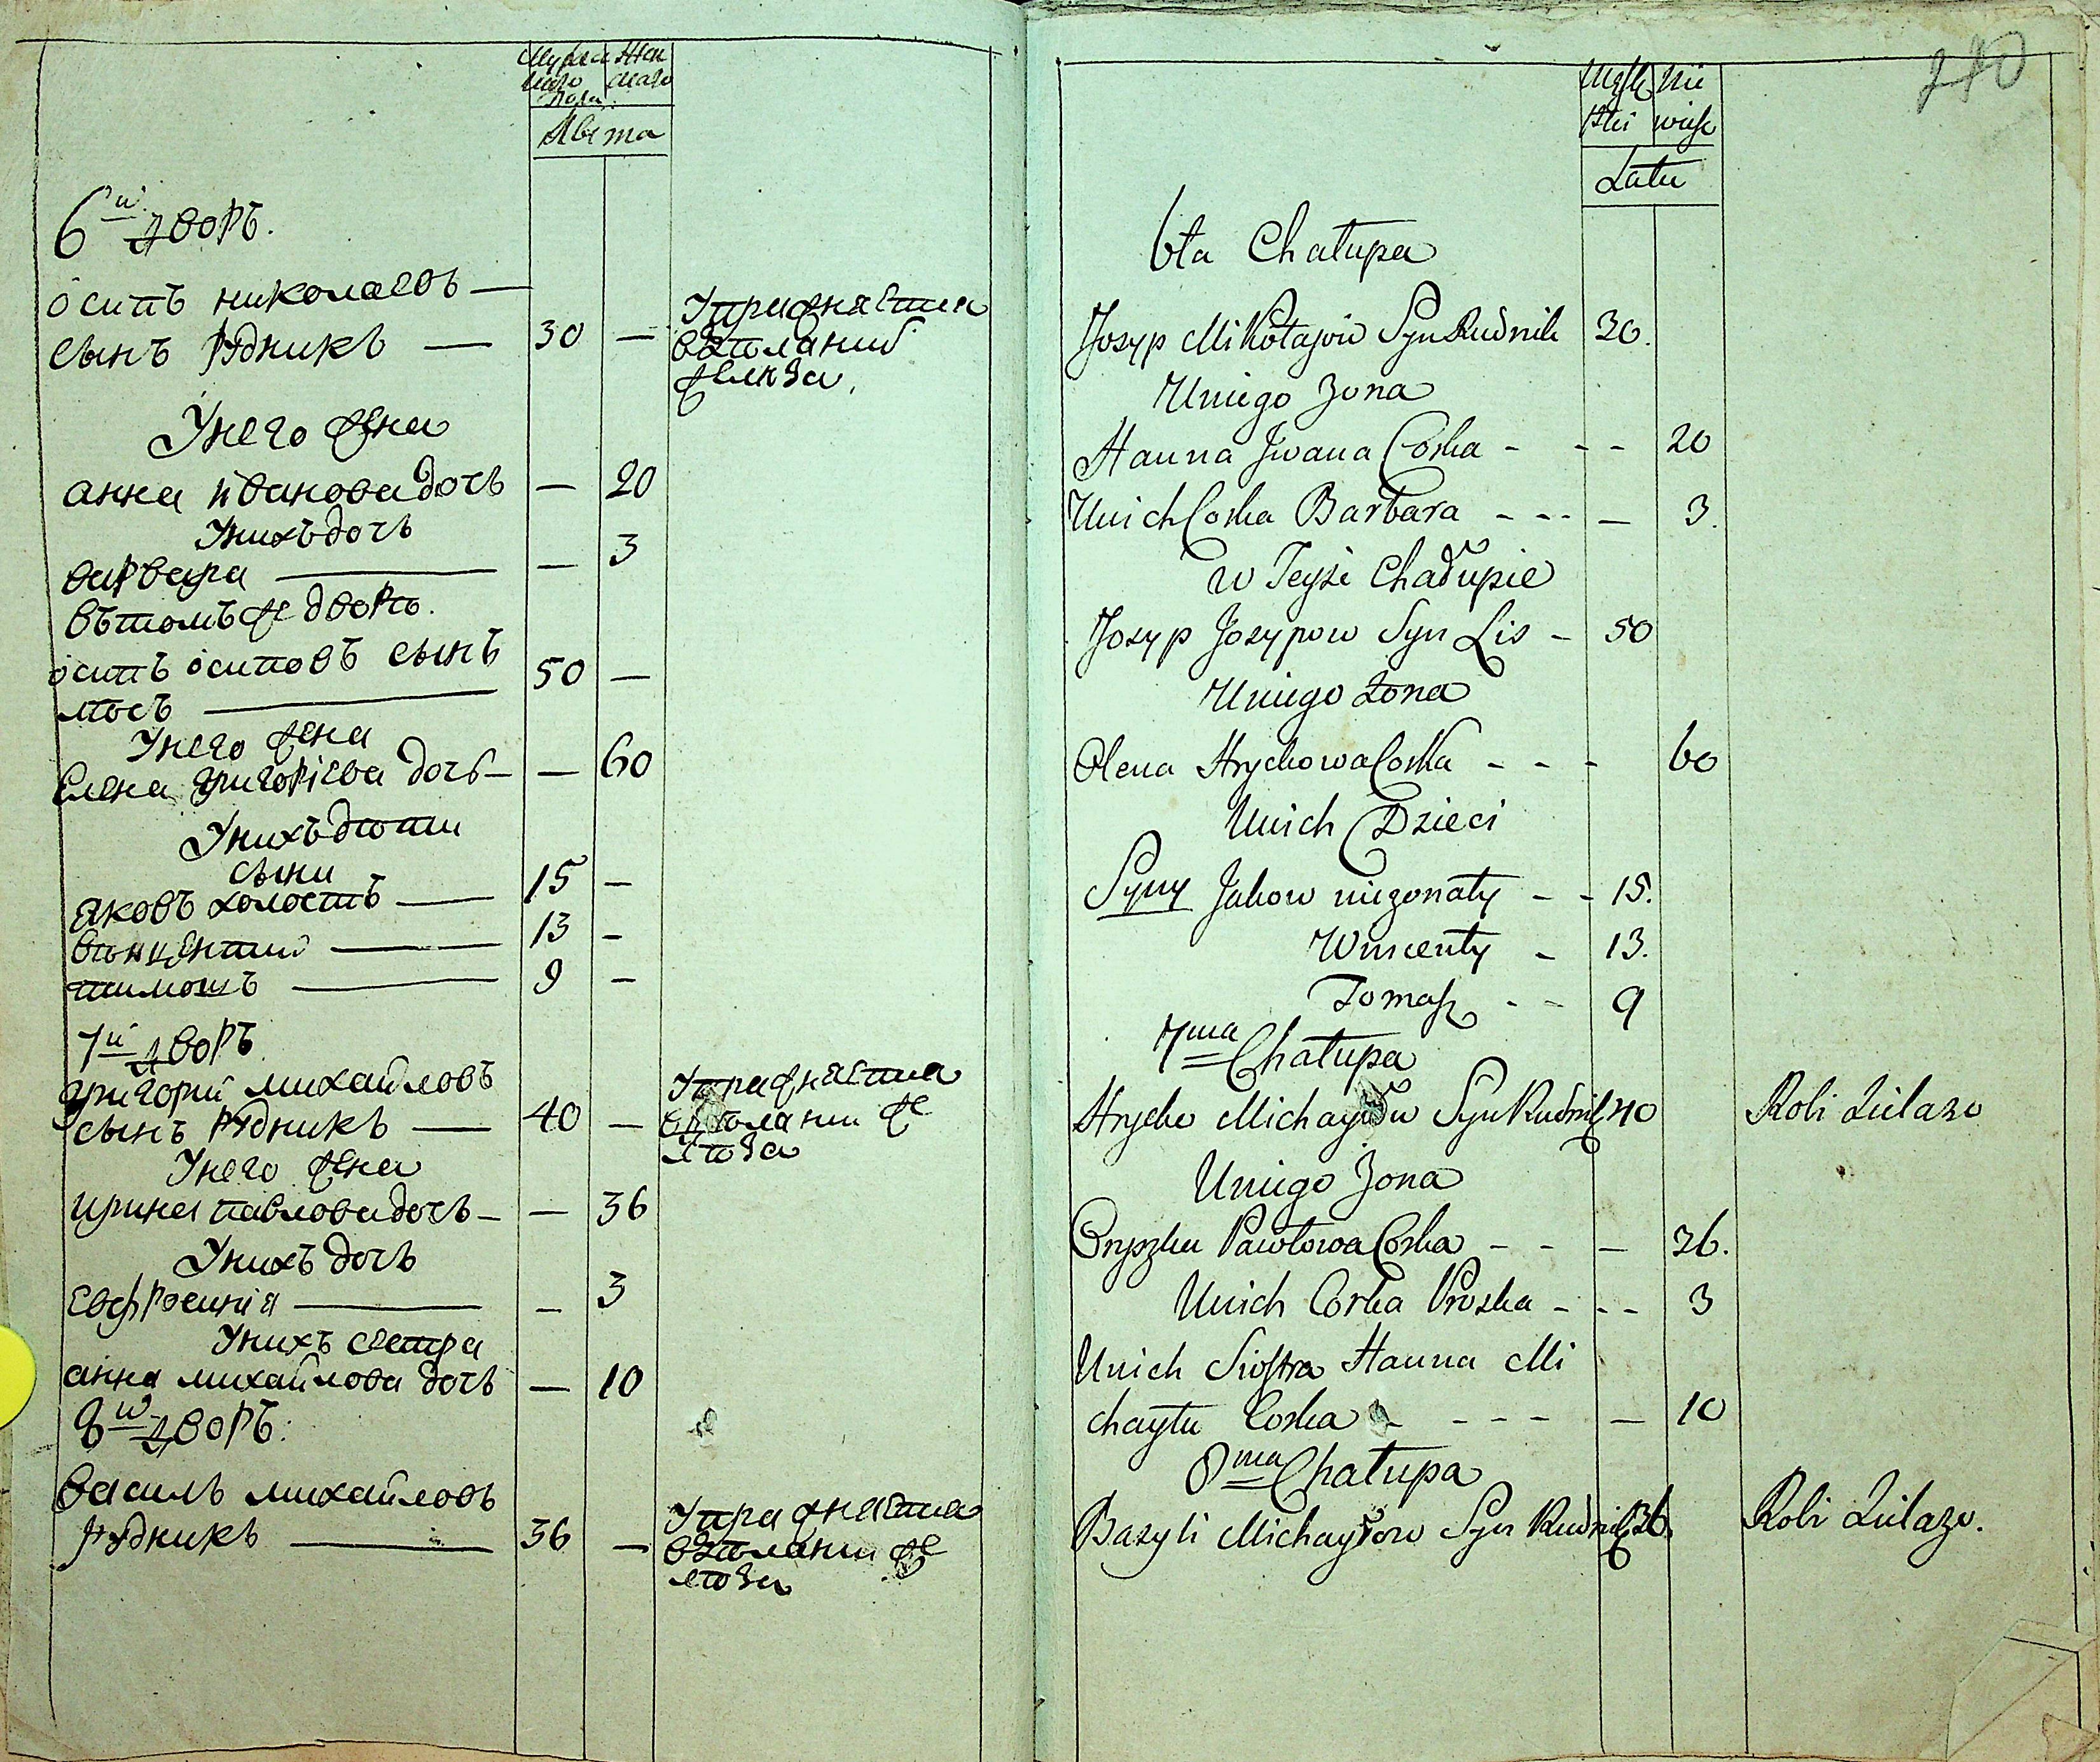 Мужеска Жен
каго скаго
пола:
Лѣта
6й дворъ.
осипъ николаевъ —
сынъ рудникъ — 30 —
Упражняетца
в зделаний
железа.
Унего жена
анна иванова дочь — 20
Унихъ дочь
варвара — — 3
въ томъ же дворѣ.
осипъ осиповъ сынъ
лисъ — 50 —
Унего жена
Елена григорiева дочь — — 60
Унихъ дѣти
сыни
яковъ холостъ — 15 —
винцентий — 13 —
тимошъ — 9 —
7й дворъ
григорий михайловъ
сынъ рудникъ — 40 —
Упражняетца
в зделании же
лѣза
Унего жена
ирина павлова дочь — — 36
Унихъ дочь
евфросинiя — — 3
Унихъ сестра
анна михайлова дочь — 10
8й дворъ:
василь михайловъ
рудникъ — 36 —
Упражняетца
в зделании же
лѣза
240
Męsk Nie
skie wiesc
Latu
6ta Chałupa
Josyp Mikołajow Syn Rudnik 30.
Uniego Zona
Hanna Jwana Corka - - - 20
Unich Corka Barbara - - - — 3.
w Teyże Chałupie
Josyp Josypow Syn Lis - 50
Uniego Zona
Olena Hrychowa Corka - - - 60
Unich Dzieci
Syny Jakow niezonaty - - 15.
Wincenty - 13.
Tomasz - - 9
7ma Chałupa
Hrycko Michayłow Syn Rudnik 40 Robi Żelazo
Uniego Zona
Oryszka Pawłowa Corka - - — 36.
Unich Corka Proska - - - 3
Unich Siostra Hanna Mi
chayła Corka - - - - — 10
8ma Chałupa
Bazyli Michayłow Syn Rudnik 36. Robi Żelazo.